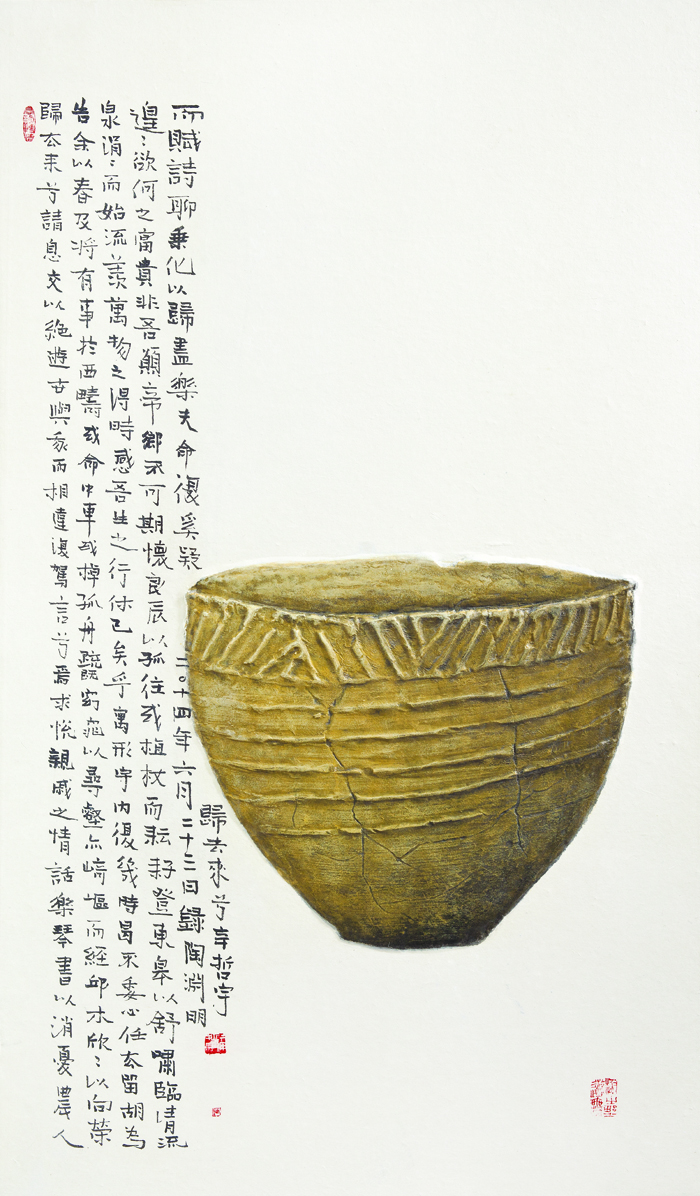 歸去来兮請息交以絶遊世與我而相違復駕言兮焉求悅親戚之情話樂琴書以消憂農人
告余以春及將有事於西疇或命巾車或棹孤舟既窈窕以尋壑亦崎嶇而經邱木欣〻以向榮
泉涓〻而始流羨萬物之得時感吾生之行休已矣乎寓形宇内復幾時曷不委心任去留胡為
遑〻欲何之富貴非吾願帝鄉不可期懷良辰以孤往或植杖而耘耔登東皋以舒嘯臨清流
而賦詩聊乘化以歸盡樂夫命復奚疑
二〇十四年六月二十三日錄陶淵明
歸去來兮辛哲宇